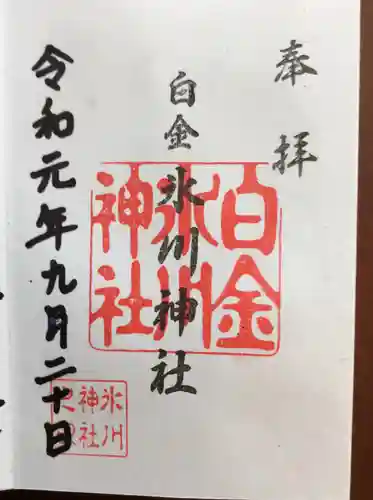 奉拝
白金
氷川神社
白金
氷川
神社
令和元年九月二十日
氷川
神社